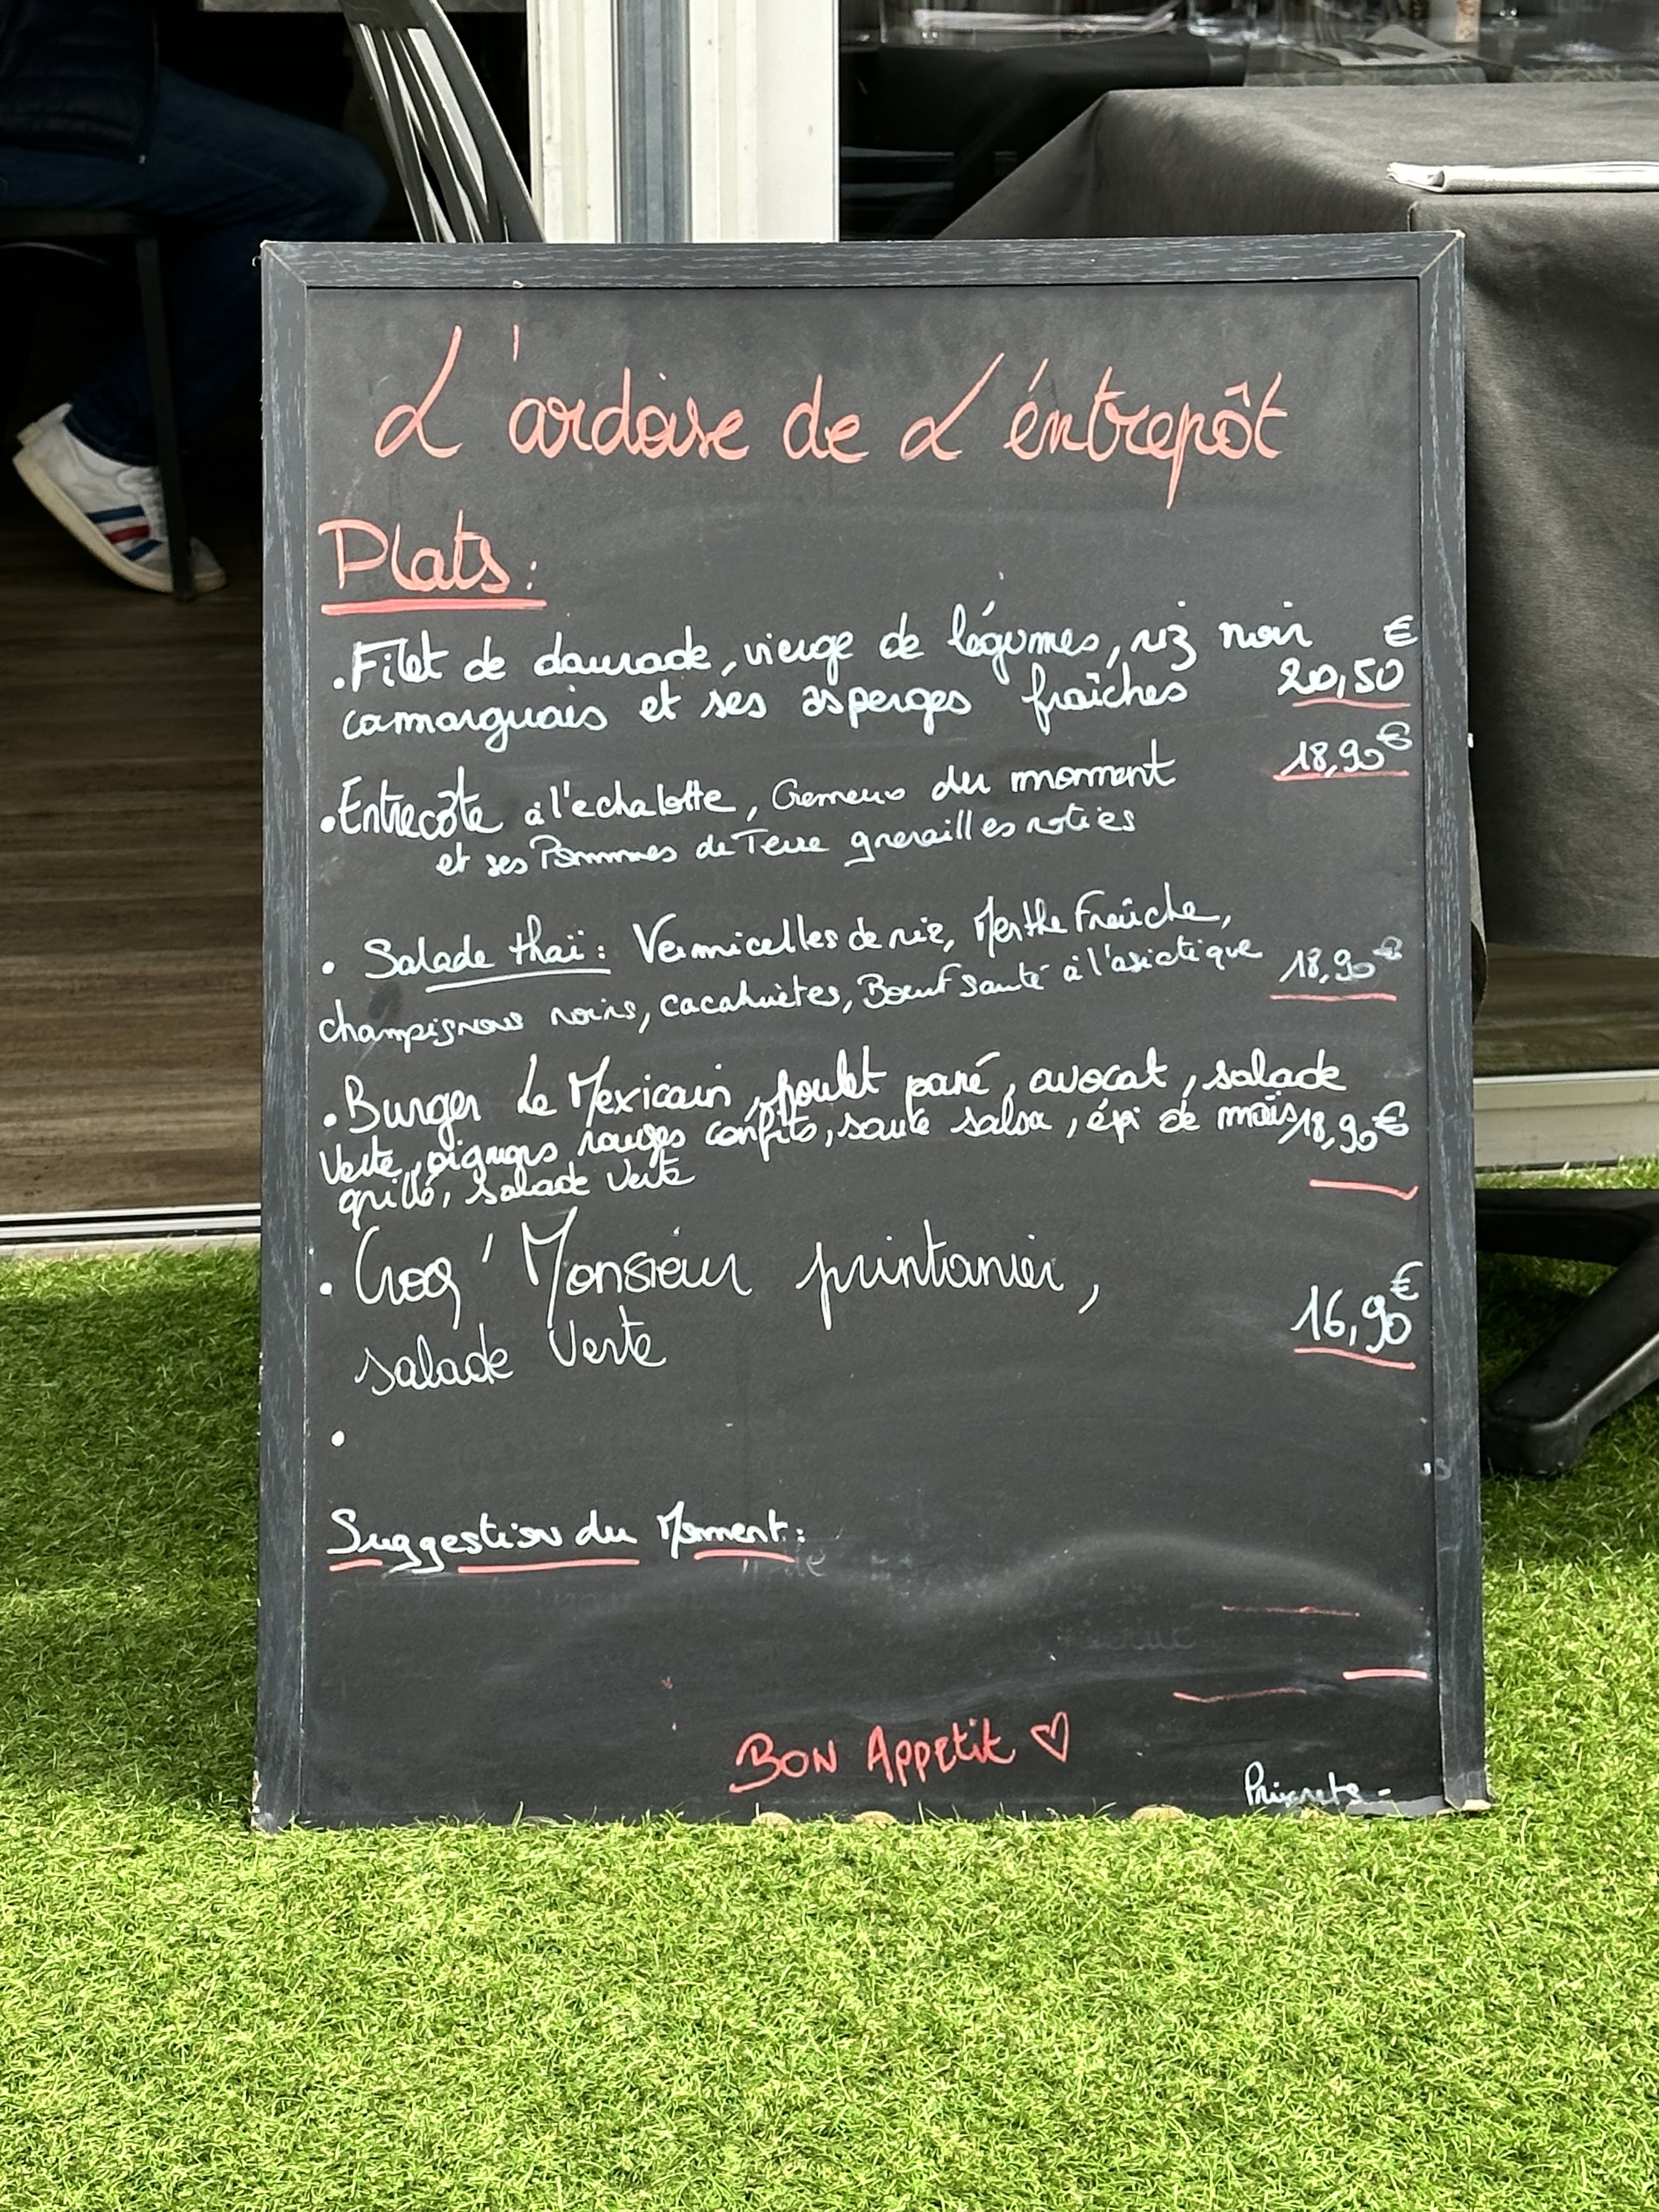 L'ardoise de L'éntrepôt
Plats :
. Filet de daurade, vierge de légumes, riz noir €
camarguais et ses asperges fraîches 20,50
• Entrecôte à l'echalotte, Cremeux du momment 18,90€
et ses Pommmes de Terre grenailles roties
• Salade thaï : Vermicelles de riz, Menthe Fraîche,
champignons noirs, cacahuètes, Bœuf sauté à l'asiatique 18,90€
. Burger Le Mexicain, poulet pané, avocat, salade
verte, oignons rouges confits, saute salsa, épi de maïs 18,90€
grillé, salade verte
. Croq' Monsieur printanier, €
salade verte 16,90
•
Suggestion du Moment :
BON Appetit ♡
Prix nets -